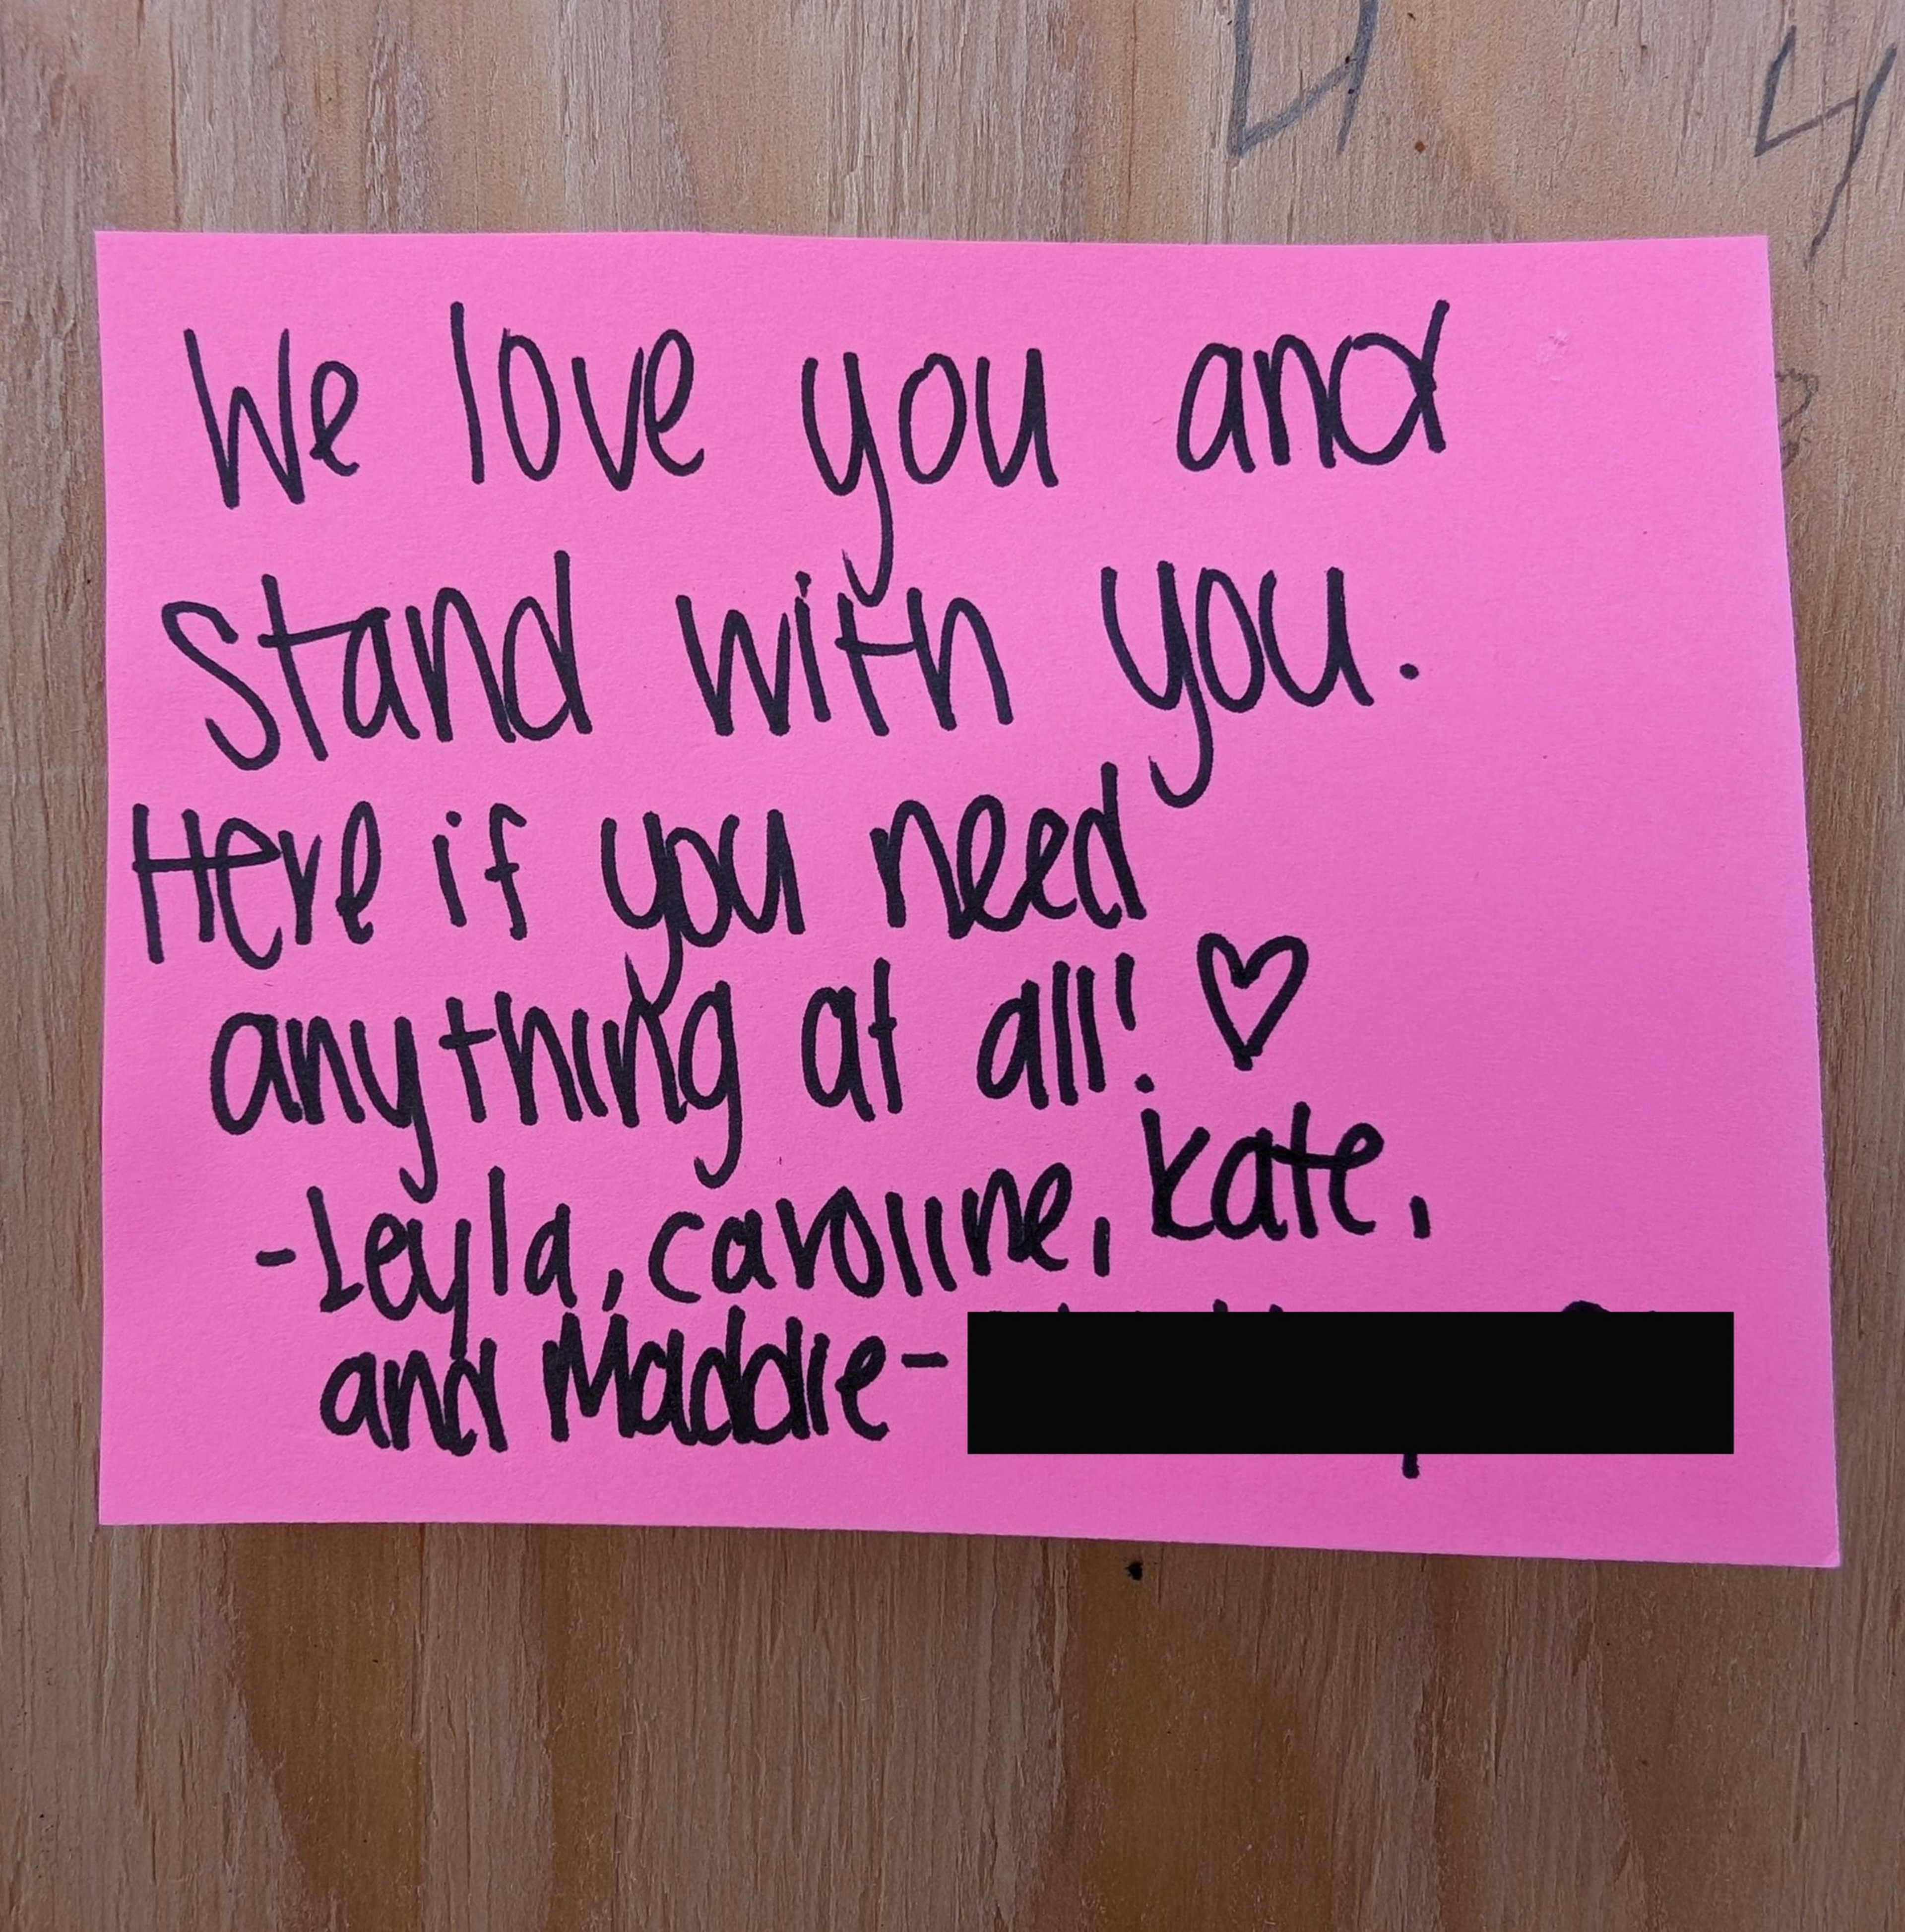 We love you and
stand with you.
Here if you need
anything at all! ♡
-Leyla, caroline, kate,
and Maddie-
4
4